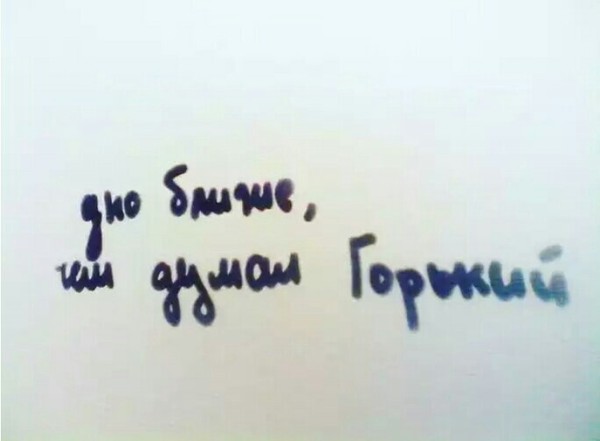 дно ближе,
чем думал Горький